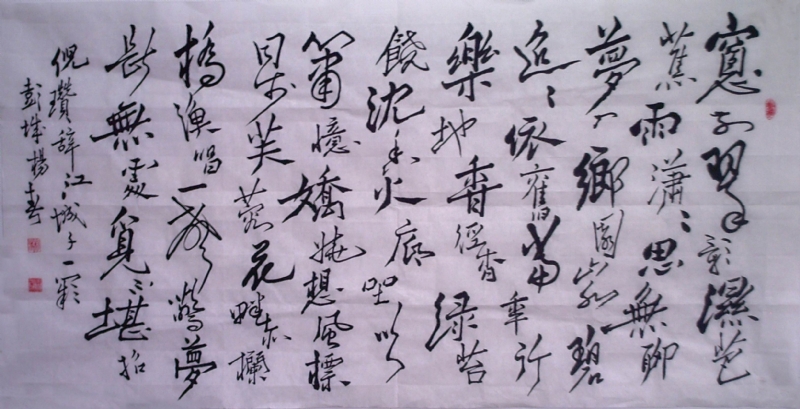 窻前翠影濕芭
蕉雨瀟瀟思無聊
夢入鄉園山水碧
迢迢依舊當年行
樂地香徑杳綠苔
饒沈香火底坐吹
簫憶嬌嬈想風標
同步芙蓉花畔赤欄
橋漁唱一聲驚夢
斷無處覓不堪招
倪瓚辭江城子一闋
彭城楊